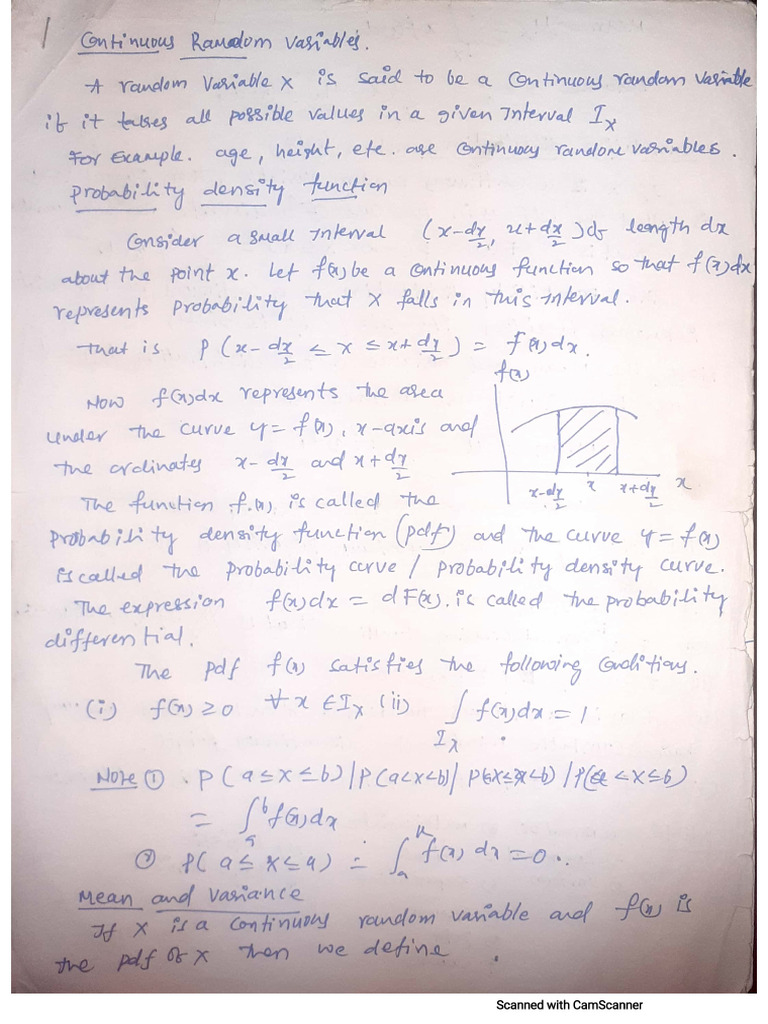 1
Continuous Random Variables.
A random Variable X is said to be a Continuous random Variable
if it takes all possible values in a given Interval I_X
For Example. age, height, etc. are continuous random variables.
Probability density function
Consider a small Interval (x-dx/2, x+dx/2) of length dx
about the point x. Let f(x) be a continuous function so that f(x)dx
represents probability that X falls in this interval.
That is P(x-dx/2 ≤ x ≤ x+dx/2) = f(x)dx.
f(x)
Now f(x)dx represents the area
under the curve y=f(x), x-axis and
the ordinates x-dx/2 and x+dx/2
x-dx/2 x x+dx/2 x
The function f(x) is called the
probability density function (pdf) and the curve y=f(x)
is called the probability curve / probability density curve.
The expression f(x)dx = dF(x). is called the probability
differential.
The pdf f(x) satisfies the following conditions.
(i) f(x) ≥ 0 ∀ x ∈ I_X (ii) ∫_{I_X} f(x)dx = 1
Note ① P(a≤x≤b) | P(a<x<b) | P(a≤x<b) | P(a<x≤b)
= ∫_a^b f(x)dx
② P(a≤x≤a) = ∫_a^a f(x) dx = 0.
Mean and Variance
If X is a continuous random variable and f(x) is
the pdf of X then we define
Scanned with CamScanner